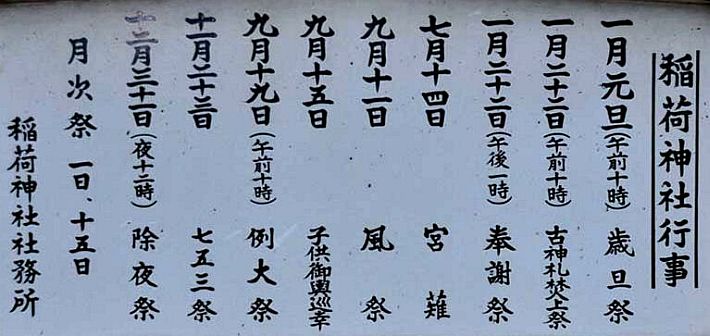 稲荷神社行事
一月元旦(午前十時) 歳旦祭
一月二十二日(午前十時) 古神札焚上祭
一月二十二日(午後一時) 奉謝祭
七月十四日 宮薙
九月十一日 風祭
九月十五日 子供御輿巡幸
九月十九日(午前十時) 例大祭
十一月二十三日 七五三祭
十二月三十一日(夜十二時) 除夜祭
月次祭 一日、十五日
稲荷神社社務所